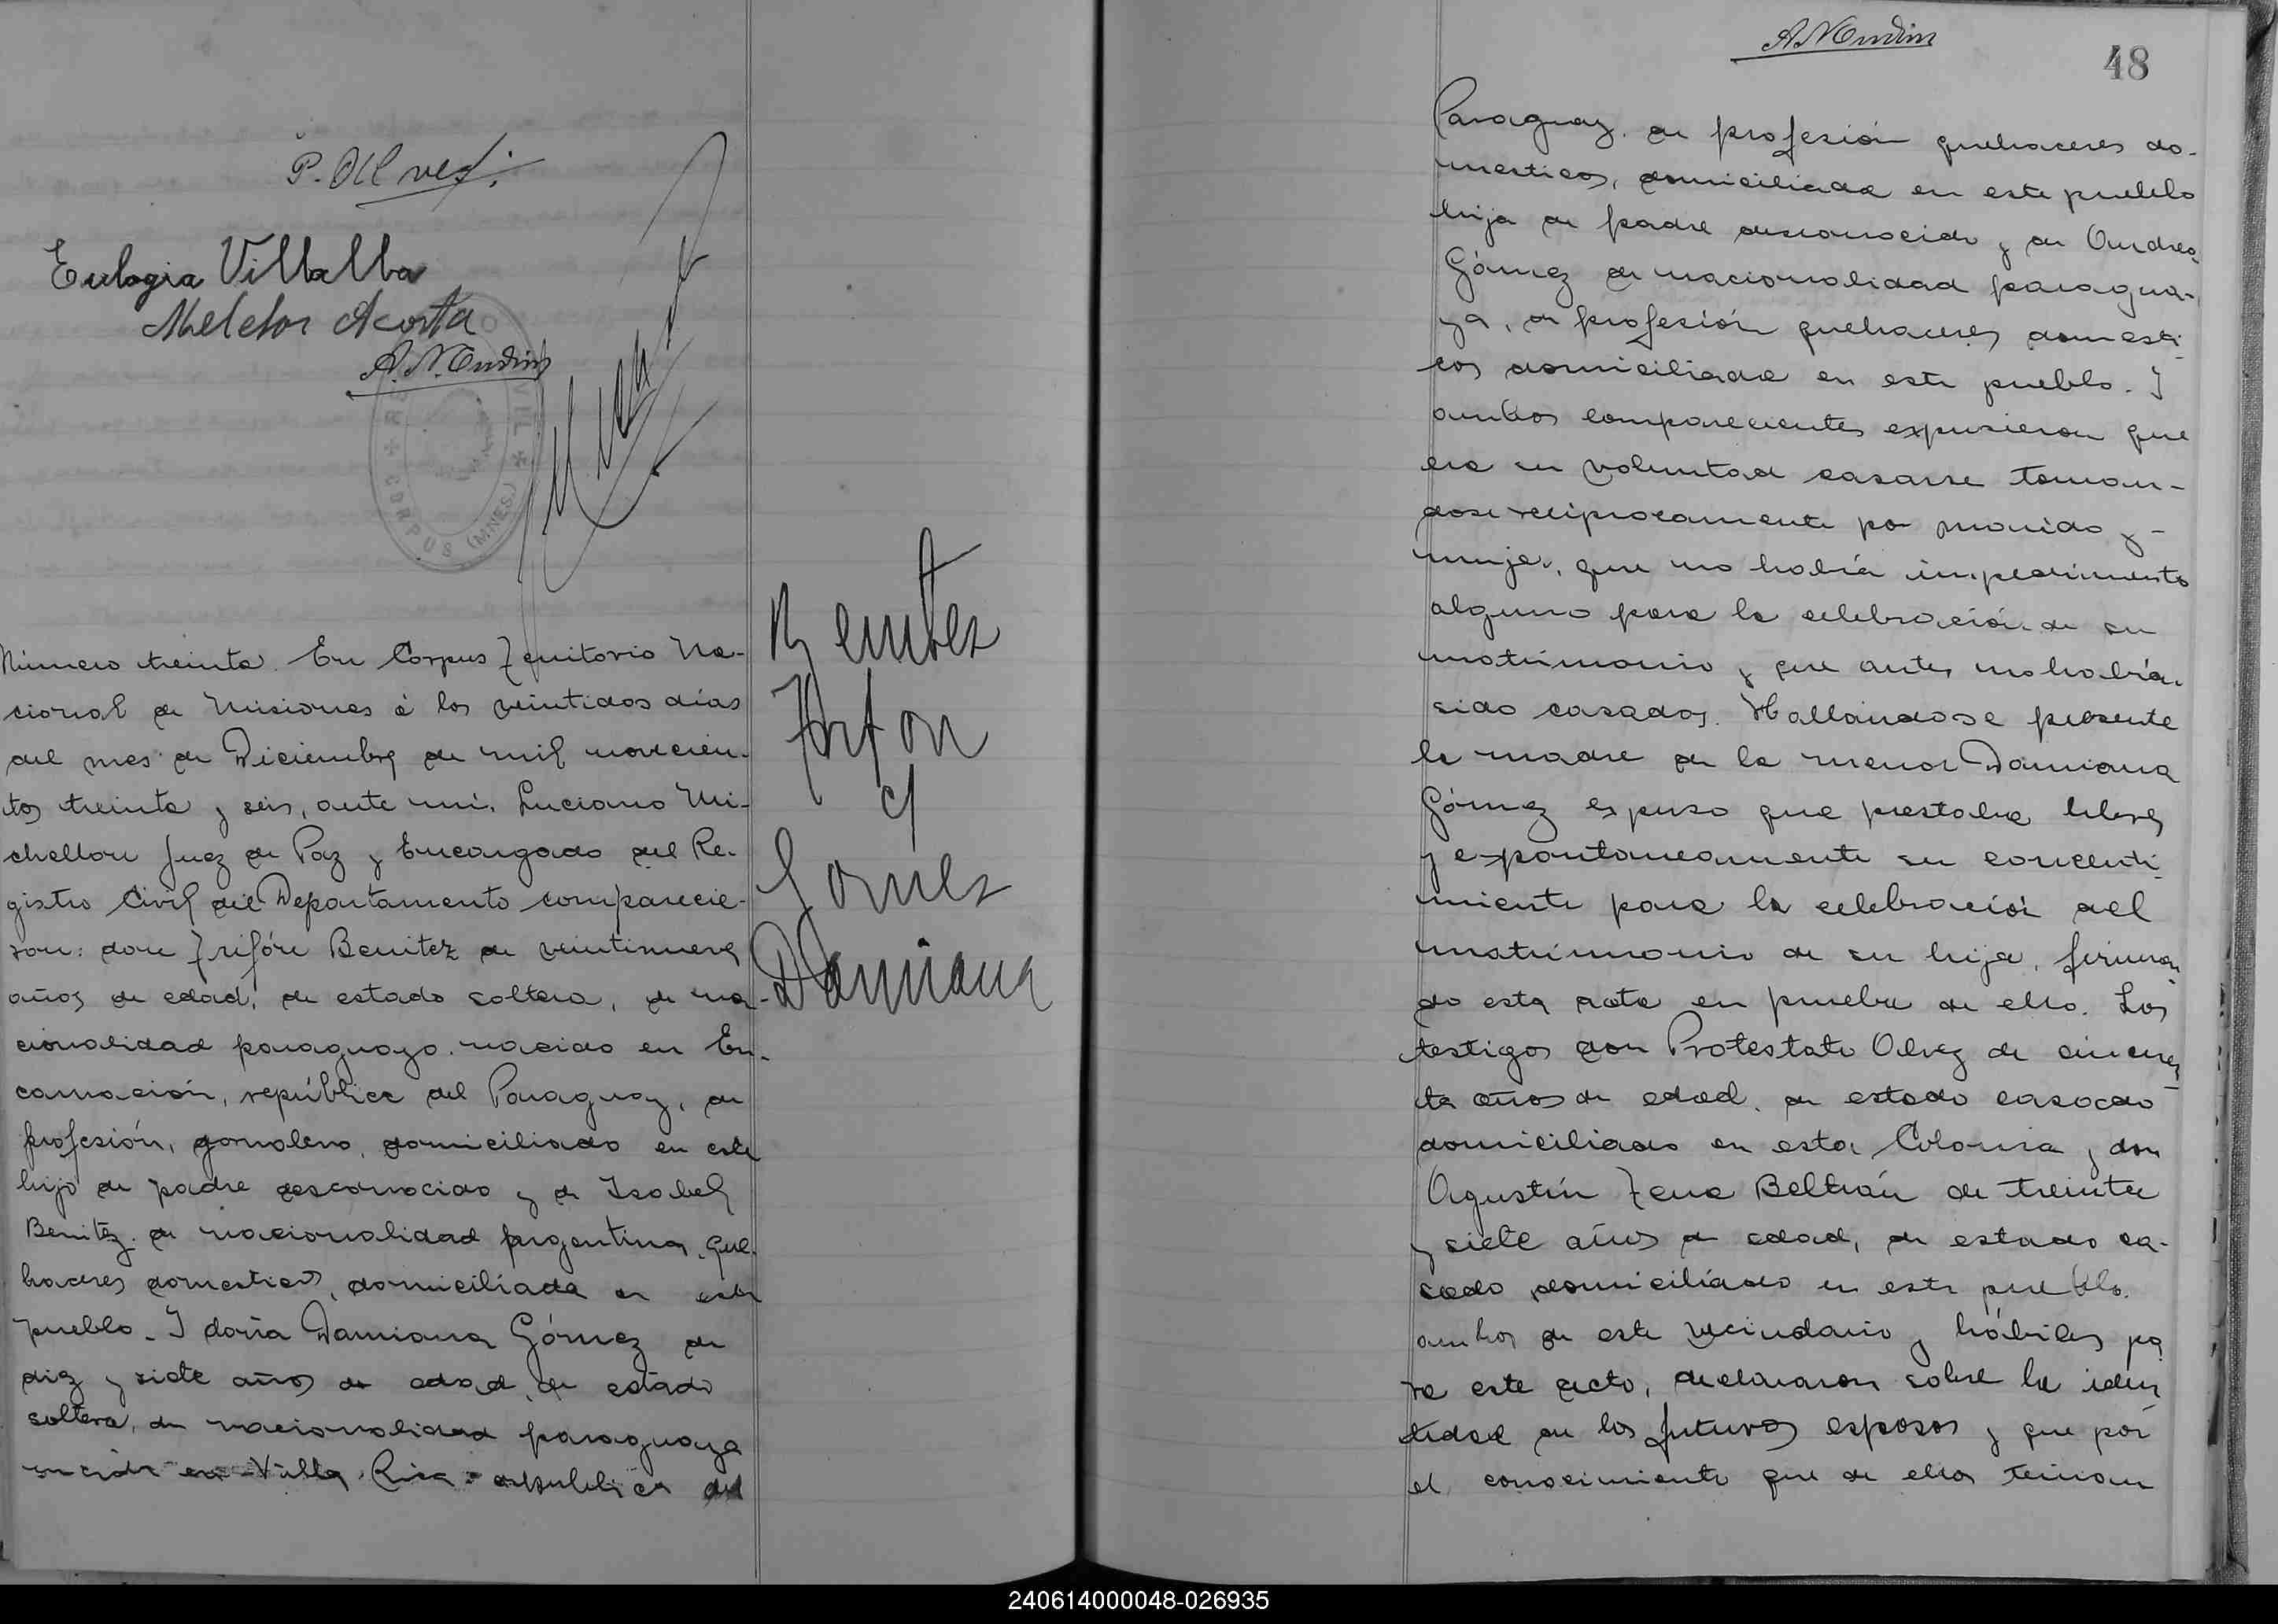 P. Olivez.
Eulogia Villalba
Melchor Acosta
CORPUS (MNES.)
Número treinta. En Corpus Territorio Na-
cional de Misiones á los veintidos días
del mes de Diciembre de mil novecien-
tos treinta y seis, ante mí, Luciano Mi-
chellon Juez de Paz y Encargado del Re-
gistro Civil del Departamento comparecie-
ron: don Trifón Benitez de veintinueve
años de edad, de estado soltero, de na-
cionalidad paraguayo nacido en En-
carnación, república del Paraguay, de
profesión, jornalero, domiciliado en este
hijo de padre desconocido y de Isabel
Benitez de nacionalidad argentina, que-
haceres domesticos, domiciliada en este
pueblo. I doña Damiana Gómez de
diez y siete años de edad, de estado
soltera, de nacionalidad paraguaya
nacida en Villa Rica republica del
Benitez
Trifon
y
Gomez
Damiana
48
Paraguay, de profesión quehaceres do-
mesticos, domiciliada en este pueblo
hija de padre desconocido y de Andrea
Gómez de nacionalidad paragua-
ya, de profesión quehaceres domesti-
cos domiciliada en este pueblo. I
ambos comparecientes expusieron que
era su voluntad casarse toman-
dose reciprocamente por marido y
mujer, que no había impedimento
alguno para la celebración de su
matrimonio y que antes no habían
sido casados. Hallandose presente
la madre de la menor Damiana
Gómez expuso que prestaba libre
y espontaneamente su concenti-
miento para la celebración del
matrimonio de su hija, firman-
do esta acta en prueba de ello. Los
testigos don Protestato Olivez de cincuen-
ta años de edad, de estado casado
domiciliado en esta Colonia y don
Agustín Beltrán de treinta
y siete años de edad, de estado ca-
sado domiciliado en este pueblo.
ambos de este vecindario y hábiles pa
ra este acto, declararon sobre la iden
tidad de los futuros esposos y que por
el conocimiento que de ellos tenian
240614000048-026935